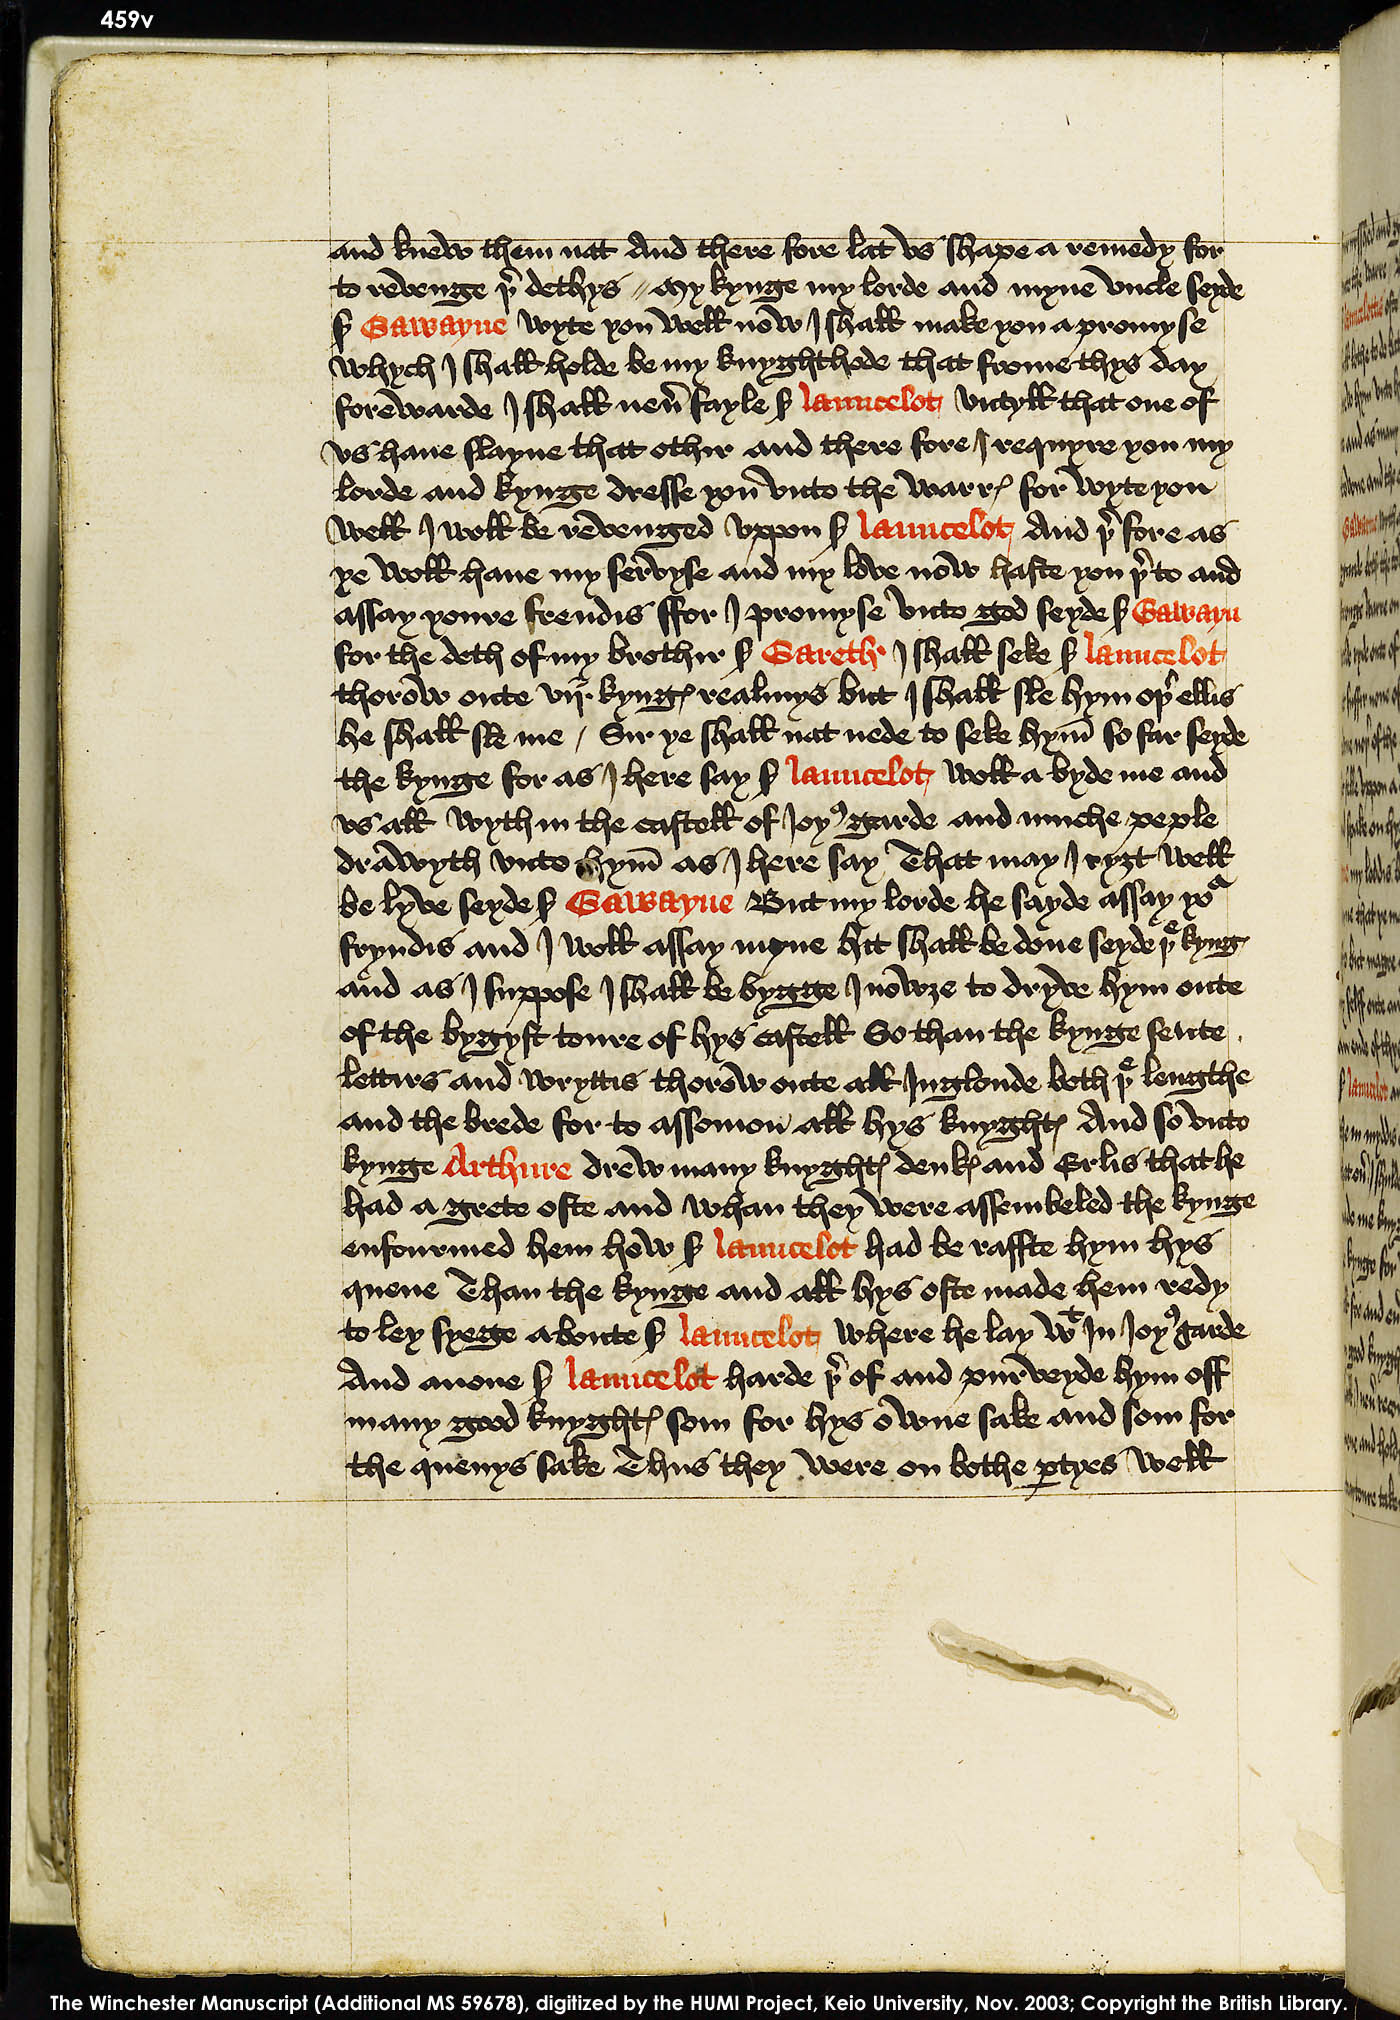 459v
and knew them nat And there fore lat vs shape a remedy for
to revenge þr dethys // My kynge my lorde and myne vncle seyde
sr Gawayne wyte you well now I shall make you a promyse
whych I shall holde be my knyghthode that frome thys day
forewarde I shall neuer fayle sr launcelot vntyll that one of
vs haue slayne that othir and there fore I requyre you my
lorde and kynge dresse you vnto the warres for wyte you
well I woll be revenged vppon sr launcelot And þr fore as
ye woll haue my servyse and my love now haste you þr to and
assay youre frendis ffor I promyse vnto god seyde sr Gawayn
for the deth of my brothir sr Gareth I shall seke sr launcelot
thorow oute vij kynges realmys but I shall sle hym oþr ellis
he shall sle me / Sir ye shall nat nede to seke hym so far seyde
the kynge for as I here say sr launcelot woll a byde me and
vs all wyth in the castell of Ioyꝰ garde and muche peple
drawyth vnto hym as I here say That may I ryȝt well
be lyve seyde sr Gawayne But my lorde he sayde assay yor
fryndis and I woll assay myne hit shall be done seyde þe kynge
and as I suppose I shall be bygge I nowȝe to dryve hym oute
of the bygyst toure of hys castell So than the kynge sente
lettirs and wryttis thorow oute all Inglonde both þe lengthe
and the brede for to assomon all hys knyghtes And so vnto
kynge Arthure drew many knyghtes deukes and Erlis that he
had a grete oste and whan they were assembeled the kynge
enfourmed hem how sr launcelot had be raffte hym hys
quene Than the kynge and all hys oste made hem redy
to ley syege aboute sr launcelot where he lay wt In Ioyꝰ garde
And anone sr launcelot harde þr of and purveyde hym off
many good knyghtes som for hys owne sake and som for
the quenys sake Thus they were on bothe partyes well
The Winchester Manuscript (Additional MS 59678), digitized by the HUMI Project, Keio University, Nov. 2003; Copyright the British Library.